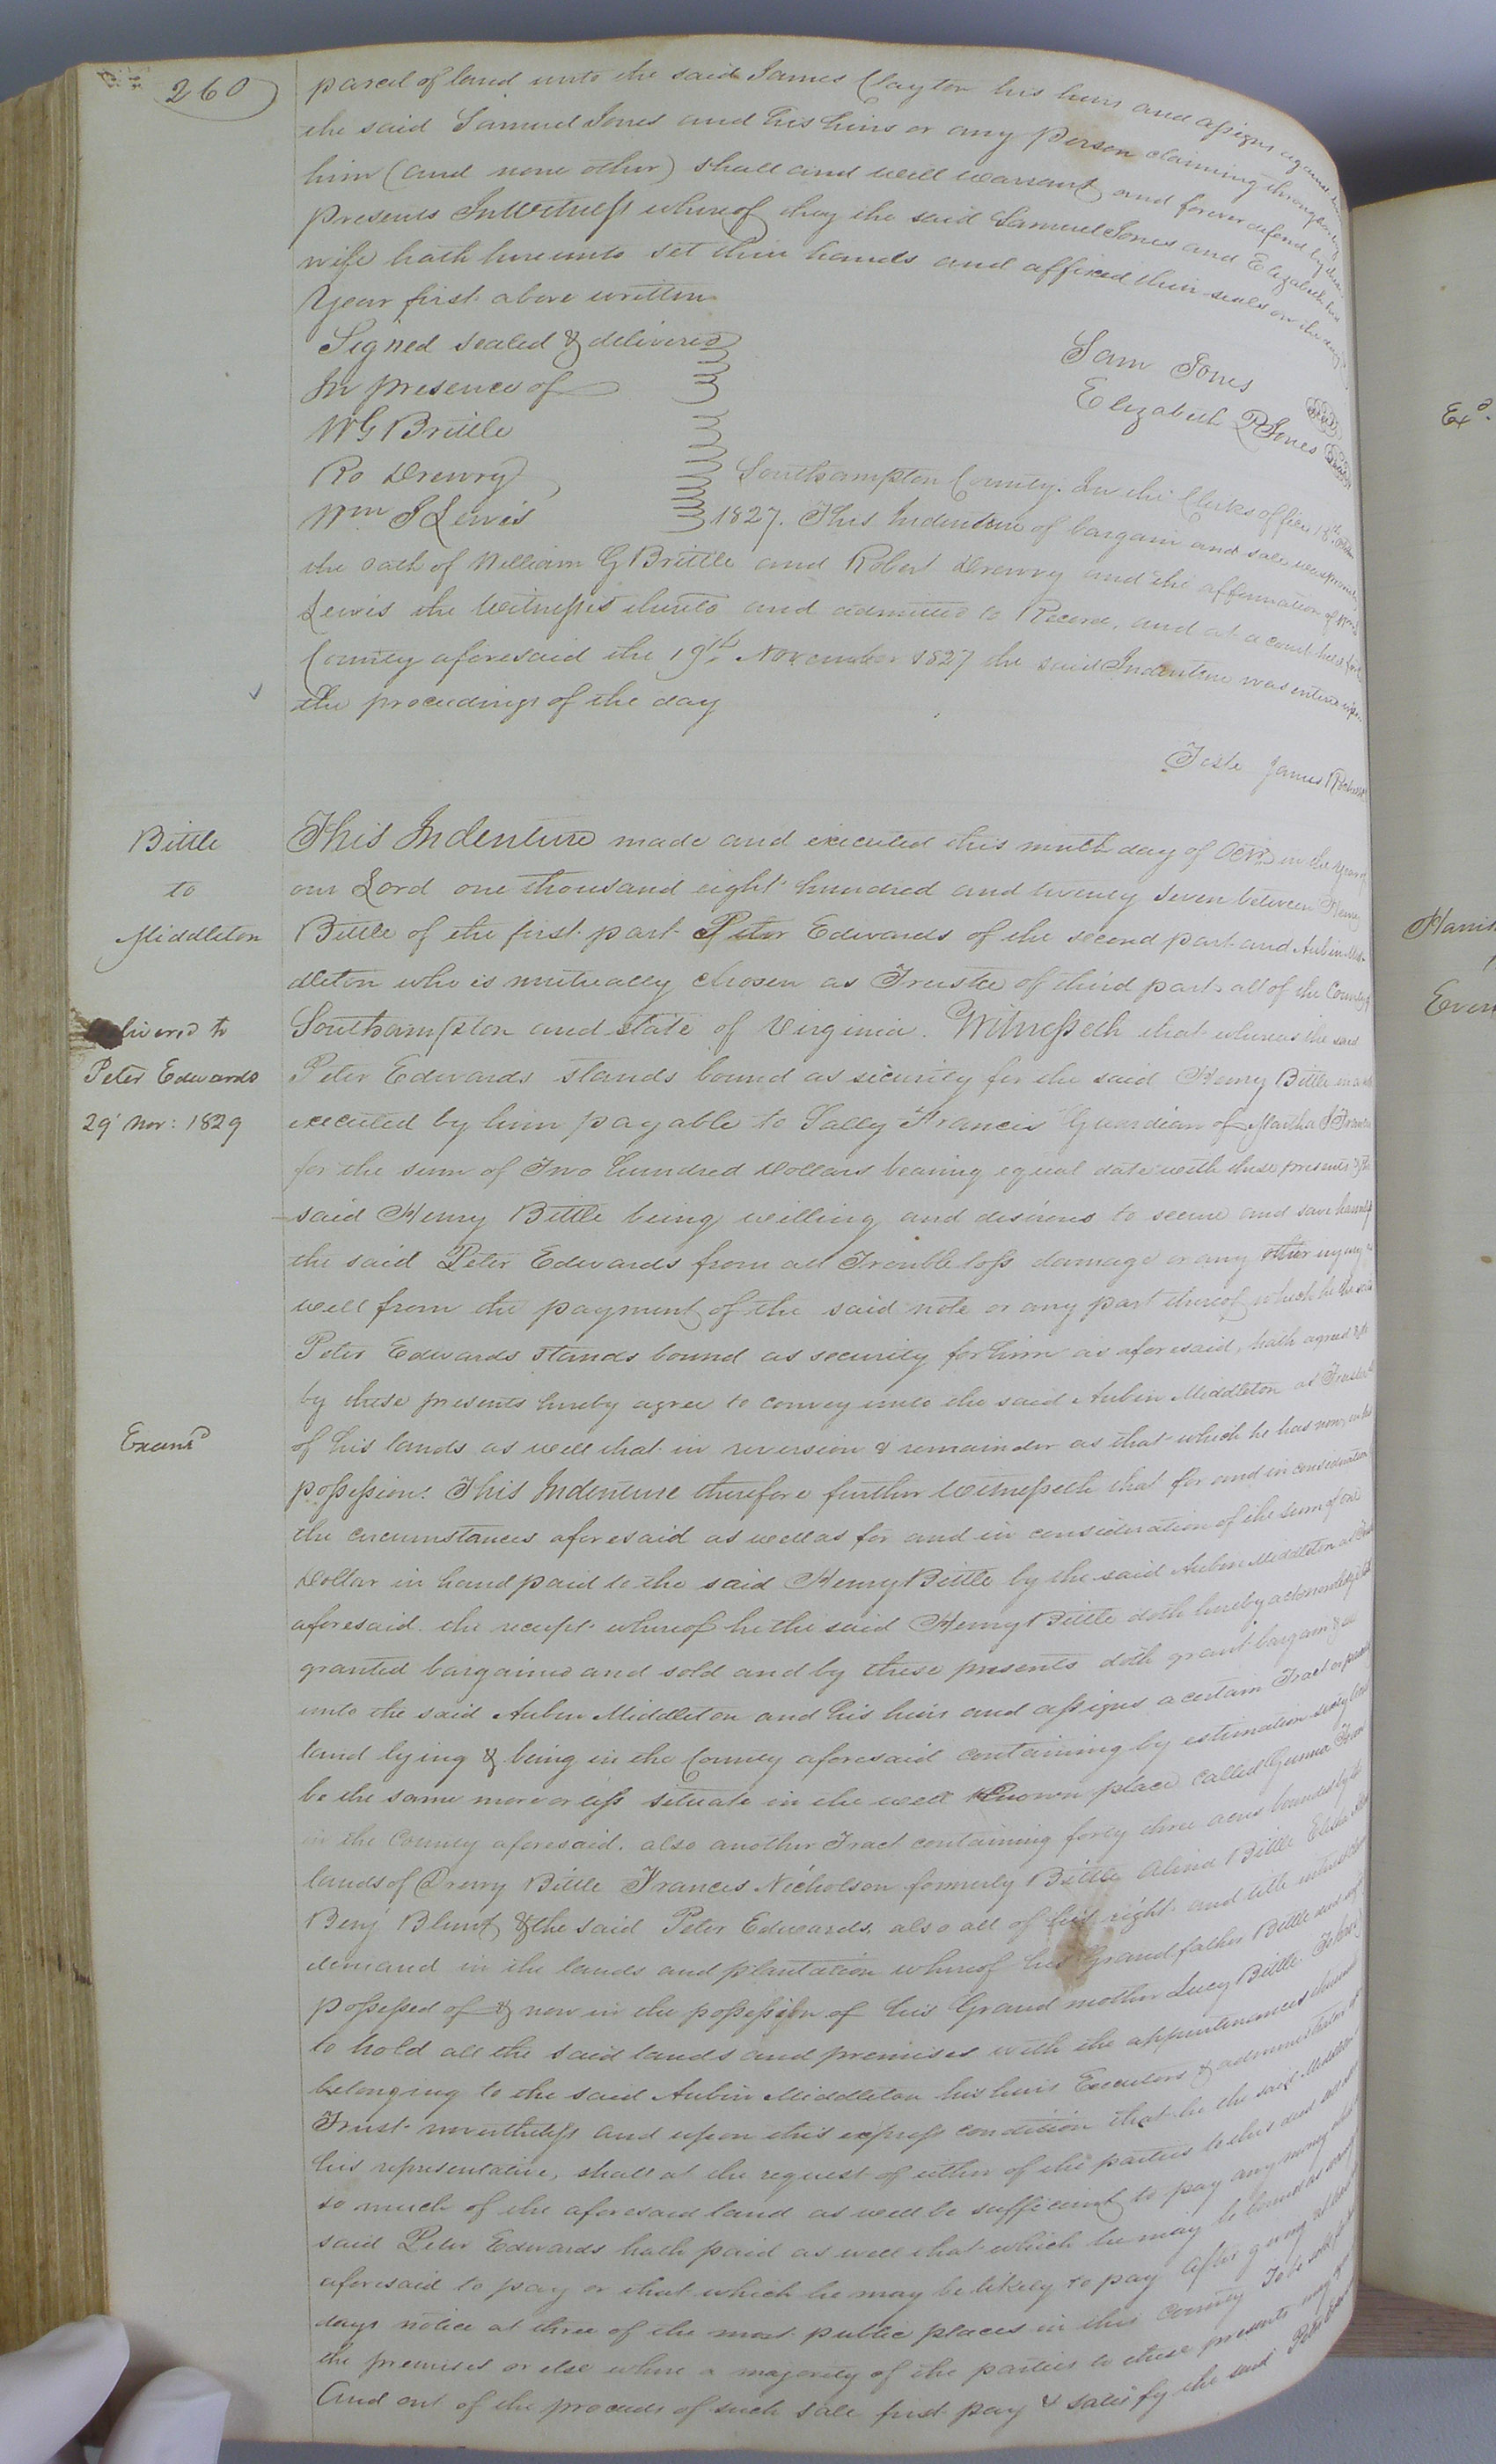 260
parcel of land unto the said James Clayton his heirs and assigns against
the said Samuel Jones and his heirs or any Person claiming through
him (and none other) shall and will warrant and forever defend by these
presents In Witness whereof they the said Samuel Jones and Elizabeth his
wife hath hereunto set their hands and affixed their seals on the day
Year first above written
Signed sealed & delivered
In presence of
WG Brittle
Ro Drewry
Wm J Lewis
Sam Jones Seal
Elizabeth P Jones Seal
Southampton County. In the Clerks office 18th
1827. This Indenture of bargain and sale was
the oath of William G Brittle and Robert Drewry and the affirmation of Wm J
Lewis the Witnesses thereto and admitted to Record, and at a court held for
County aforesaid the 19th November 1827 the said Indenture was entered upon
the proceedings of the day
Teste James Rochelle
Bittle
to
Middleton
Delivered to
Peter Edwards
29 Nov: 1829
Examd
This Indenture made and executed this ninth day of Octr in the year of
our Lord one thousand eight hundred and twenty seven between Henry
Bittle of the first part Peter Edwards of the second part and Aubin Mid-
dleton who is mutually chosen as Trustee of third part all of the County of
Southampton and state of Virginia. Witnesseth that whereas the said
Peter Edwards stands bound as security for the said Henry Bittle in a
executed by him payable to Sally Francis Guardian of Martha J Francis
for the sum of Two hundred Dollars bearing equal date with these presents & the
said Henry Bittle being willing and desirous to secure and save harmless
the said Peter Edwards from all Trouble loss damage or any other injury as
well from the payment of the said note or any part thereof which he the said
Peter Edwards stands bound as security for him as aforesaid, hath agreed &
by these presents hereby agree to convey unto the said Aubin Middleton as Trustee
of his lands as well that in reversion & remainder as that which he has now in his
possession. This Indenture therefore further Witnesseth that for and in consideration
the circumstances aforesaid as well as for and in consideration of the sum of one
Dollar in hand paid to the said Henry Bittle by the said Aubin Middleton as
aforesaid the receipt whereof he the said Henry Bittle doth hereby acknowledge
granted bargained and sold and by these presents doth grant bargain &
unto the said Aubin Middleton and his heirs and assigns a certain Tract or parcel
land lying & being in the County aforesaid containing by estimation
be the same more or less situate in the well known place called
in the County aforesaid. also another Tract containing forty three acres bounded by the
lands of Drewry Bittle Frances Nicholson formerly Bittle Bittle
Benj Blunt & the said Peter Edwards. also all of his right and title interest
demand in the lands and plantation whereof his Grand father Bittle
possessed of & now in the possession of his Grand mother Lucy Bittle. To have
to hold all the said lands and premises with the appurtenances thereunto
belonging to the said Aubin Middleton his heirs Executors & administrators
Trust nevertheless and upon this express condition that he the said Middleton
his representative, shall at the request of either of the parties to this deed sell
so much of the aforesaid land as will be sufficient to pay any money
said Peter Edwards hath paid as well that which he may be bound as
aforesaid to pay or that which he may be likely to pay after giving
days notice at three of the most public places in this County To be sold
the premises or else where a majority of the parties to these presents may
And out of the proceeds of such sale first pay & satisfy the said Peter
Exd.